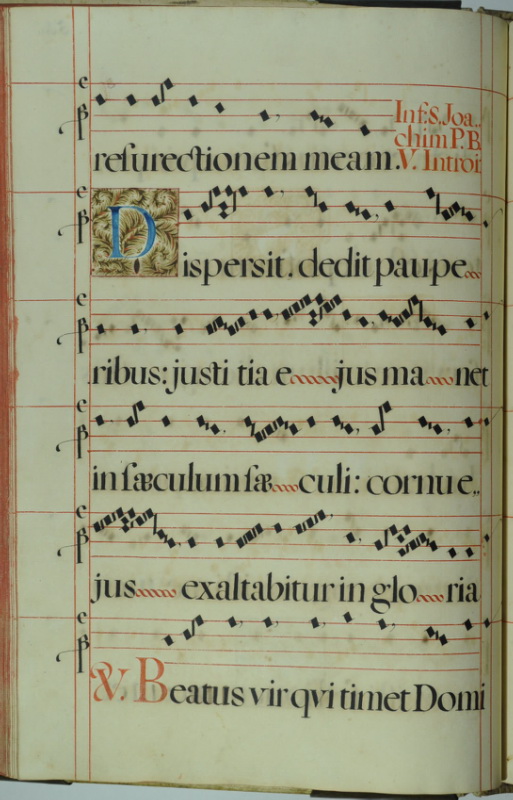 resurectionem meam.
In f. S. Joa..
chim P. B
V. Introit
Dispersit. dedit paupe
ribus: justi tia e jus ma net
in sæculum sæ culi: cornu e..
jus exaltabitur in glo ria
V. Beatus vir qvi timet Domi